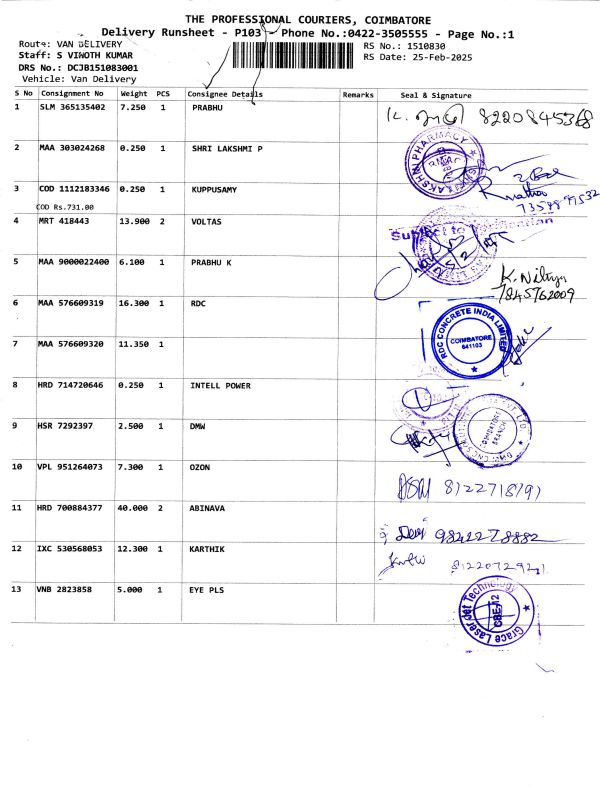 THE PROFESSIONAL COURIERS, COIMBATORE
Delivery Runsheet - P103 - Phone No.:0422-3505555 - Page No.:1
Route: VAN DELIVERY
RS No.: 1510830
Staff: S VINOTH KUMAR
RS Date: 25-Feb-2025
DRS No.: DCJB151083001
Vehicle: Van Delivery
S No Consignment No Weight PCS Consignee Details Remarks Seal & Signature
1 SLM 365135402 7.250 1 PRABHU
8220845368
2 MAA 303024268 0.250 1 SHRI LAKSHMI P
LAKSHMI PHARMACY
3 COD 1112183346 0.250 1 KUPPUSAMY
COD Rs.731.00
4 MRT 418443 13.900 2 VOLTAS
Subject to
5 MAA 9000022400 6.100 1 PRABHU K
K. Nithya
7845762009
6 MAA 576609319 16.300 1 RDC
RDC CONCRETE INDIA LIMITED
COIMBATORE
641103
7 MAA 576609320 11.350 1
8 HRD 714720646 0.250 1 INTELL POWER
9 HSR 7292397 2.500 1 DMW
COIMBATORE
BRANCH
10 VPL 951264073 7.300 1 OZON
8122718791
11 HRD 700884377 40.000 2 ABINAVA
Devi 9842278882
12 IXC 530568053 12.300 1 KARTHIK
13 VNB 2823858 5.000 1 EYE PLS
Grace Laserjet Technology
CBE-12